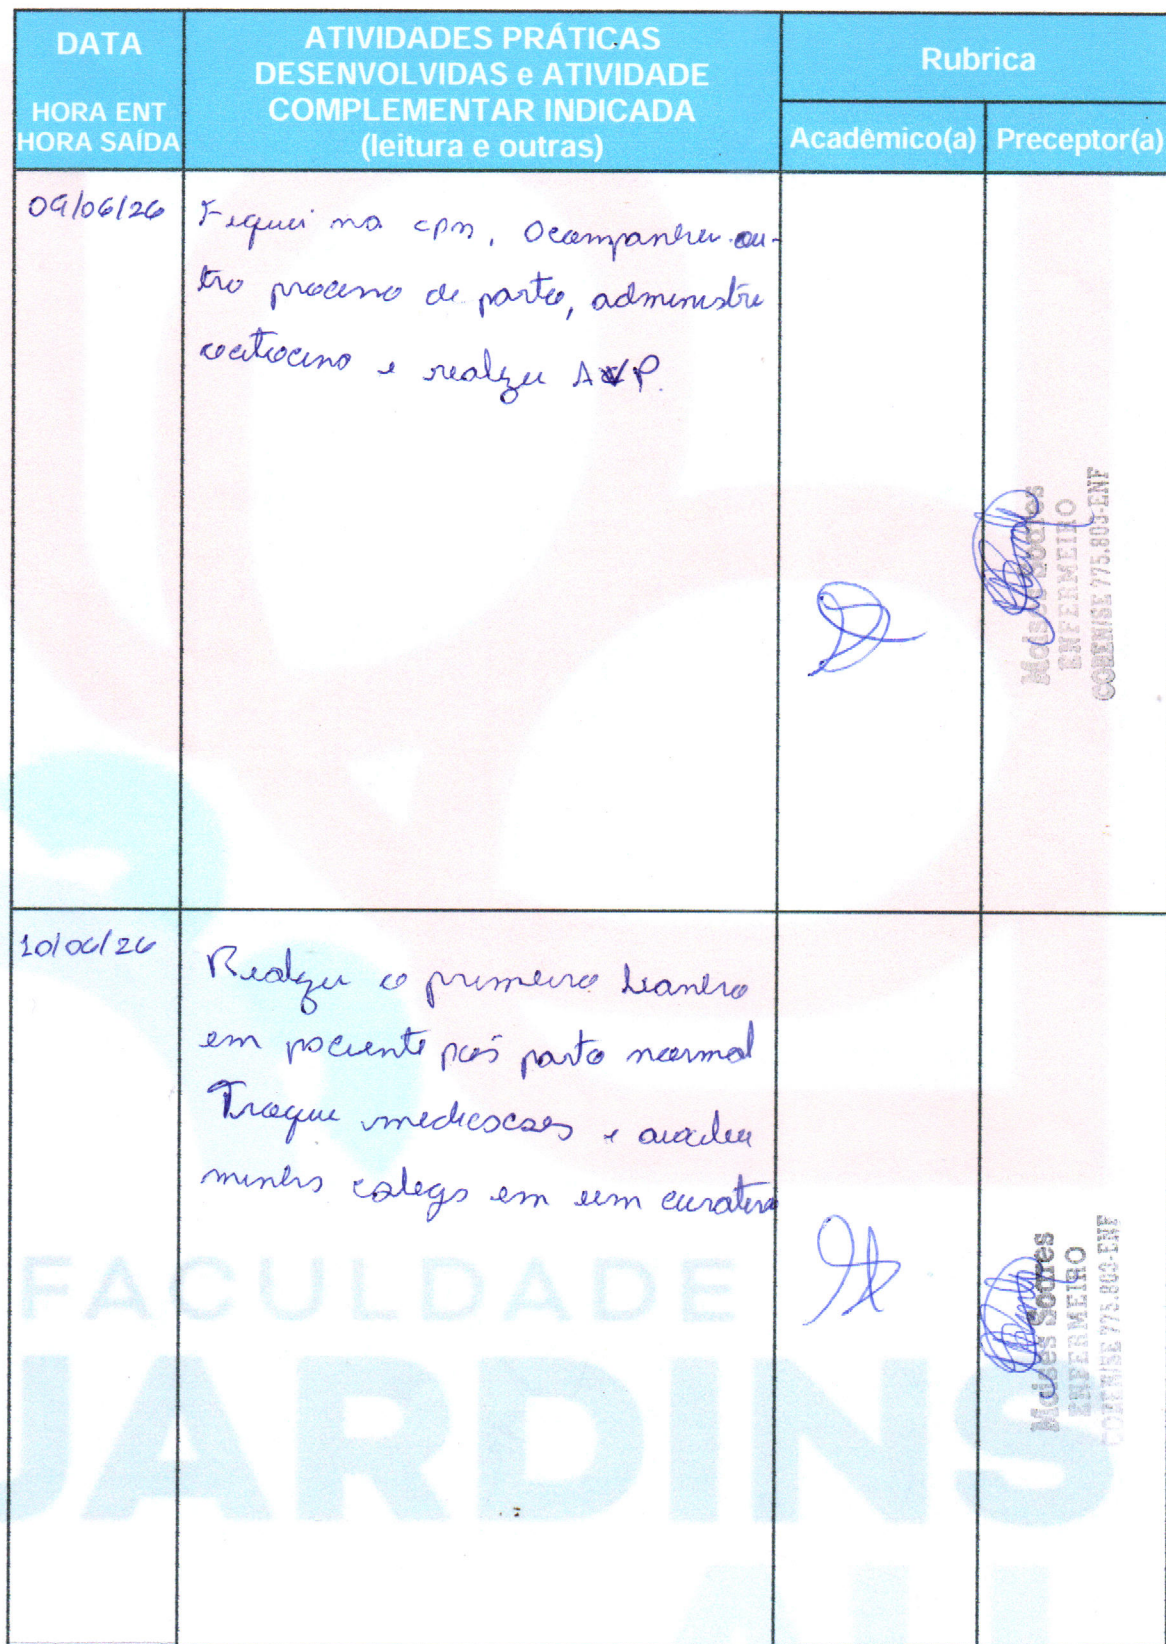 DATA
HORA ENT
HORA SAÍDA
ATIVIDADES PRÁTICAS
DESENVOLVIDAS e ATIVIDADE
COMPLEMENTAR INDICADA
(leitura e outras)
Rubrica
Acadêmico(a)
Preceptor(a)
09/06/26
Fiquei na cpn, acompanhei ou-
tro processo de parto, administrei
ocitocina e realizei AVP.
Moises Soares
ENFERMEIRO
COREN/SE 775.803-ENF
10/06/26
Realizei o primeiro banho
em paciente pós parto normal
Troquei medicações e auxiliei
minha colega em um curativo
Moises Soares
ENFERMEIRO
COREN/SE 775.803-ENF
FACULDADE
JARDINS